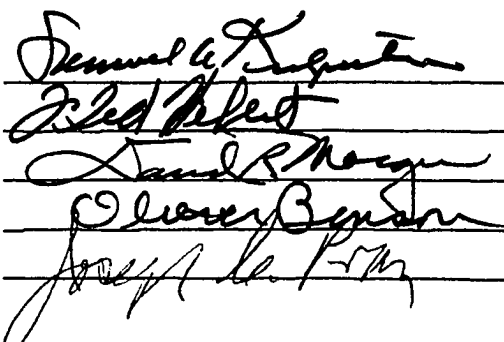 Samuel A. Kirkpatrick
F. Ted Hebert
David R. Morgan
Oliver Benson
Joseph C. Pray